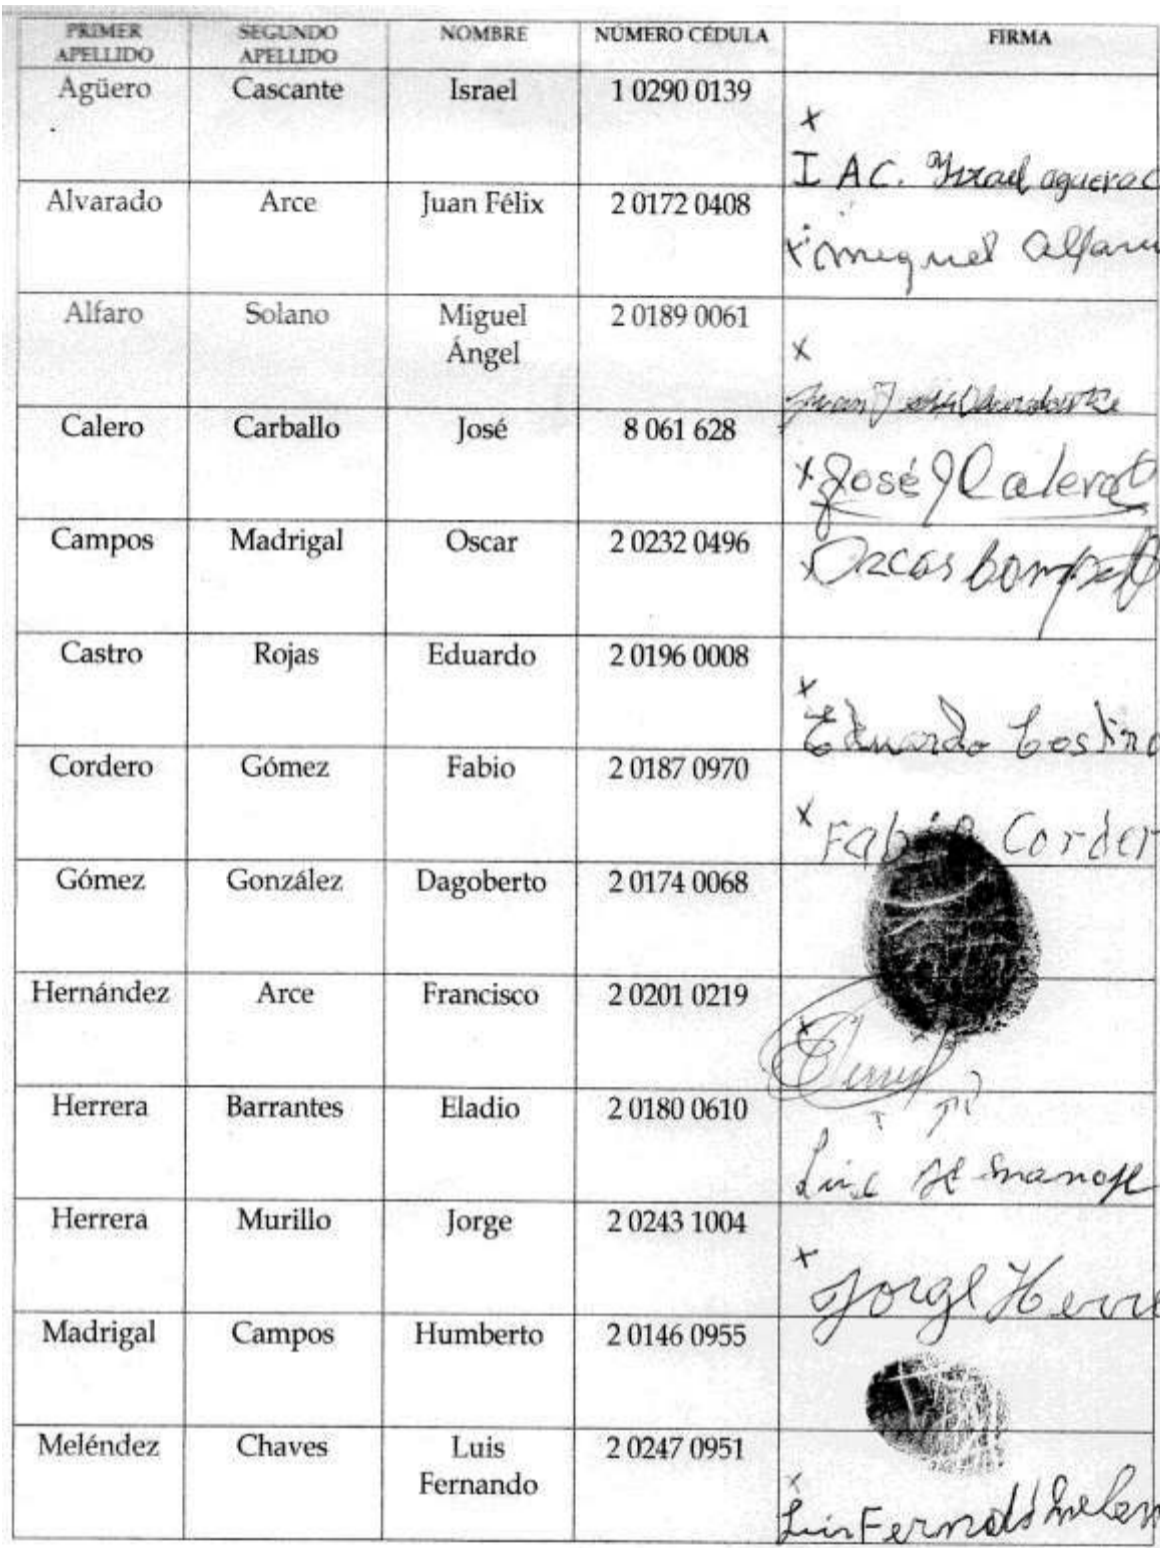 PRIMER APELLIDO SEGUNDO APELLIDO NOMBRE NÚMERO CÉDULA FIRMA
Agüero Cascante Israel 1 0290 0139
x
I A C. Ysrael aguero c
Alvarado Arce Juan Félix 2 0172 0408
x miguel alfaro
Alfaro Solano Miguel Ángel 2 0189 0061
x
Juan
Calero Carballo José 8 061 628
x José J Calero
Campos Madrigal Oscar 2 0232 0496
x
Castro Rojas Eduardo 2 0196 0008
x
Eduardo
Cordero Gómez Fabio 2 0187 0970
x Fabio Corder
Gómez González Dagoberto 2 0174 0068
Hernández Arce Francisco 2 0201 0219
x
Herrera Barrantes Eladio 2 0180 0610
Herrera Murillo Jorge 2 0243 1004
x Jorge Herre
Madrigal Campos Humberto 2 0146 0955
Meléndez Chaves Luis Fernando 2 0247 0951
x
Luis Fernando Melen